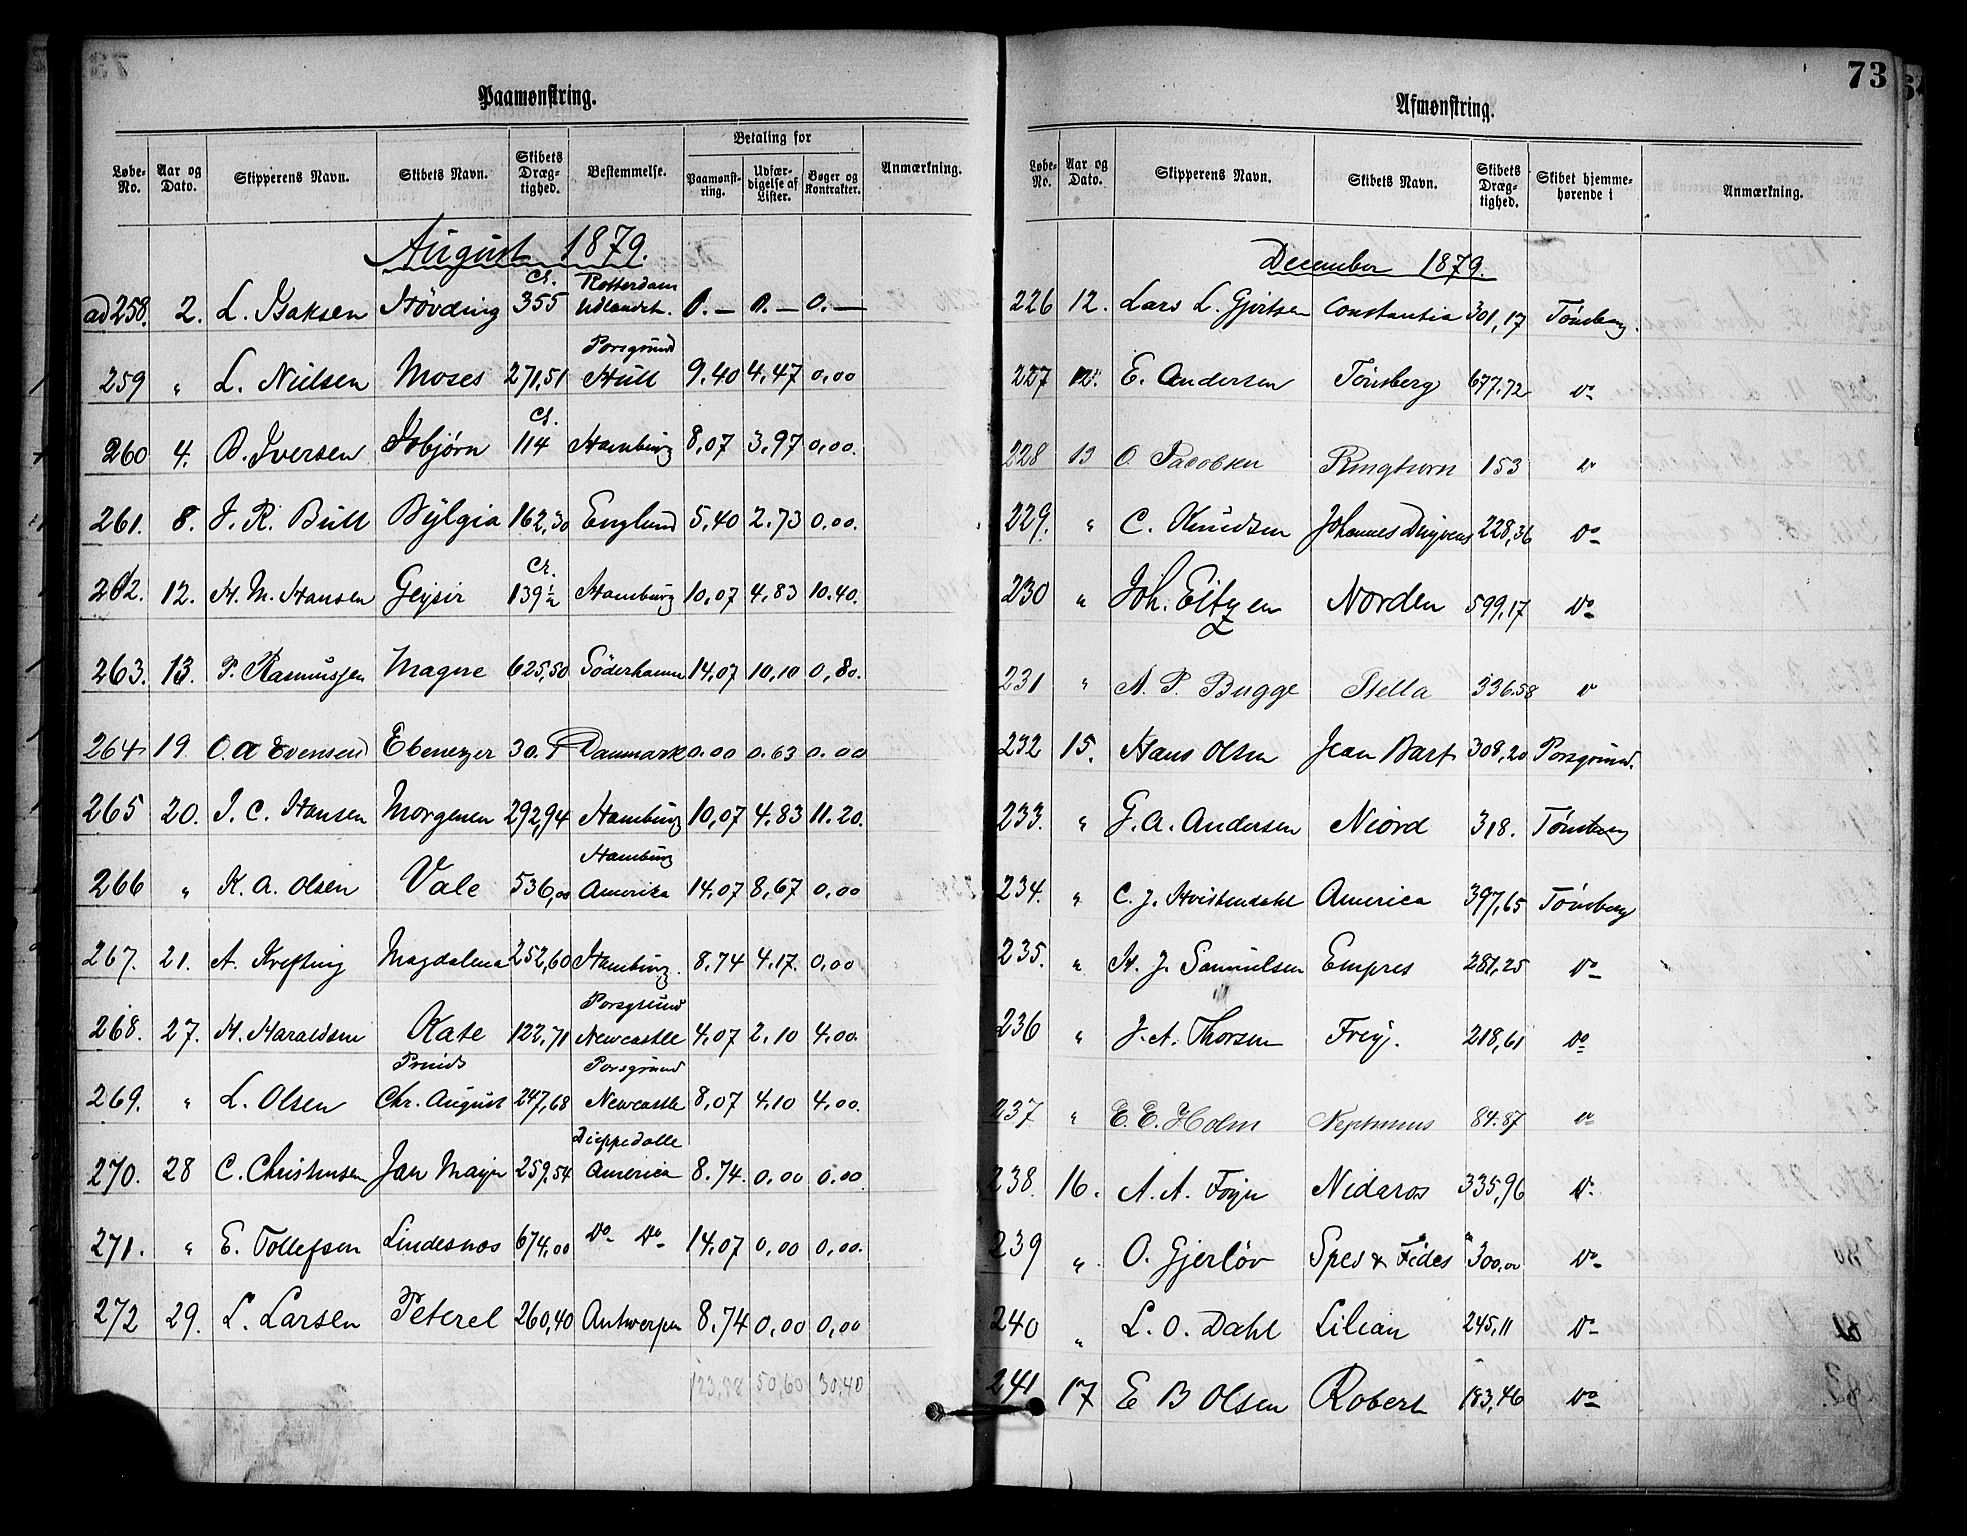 73
Paamønstring.
Løbe-No. Aar og Dato. Skipperens Navn. Skibets Navn. Skibets Dræg-tighed. Bestemmelse. Betaling for Paamønst-ring. Udfær-digelse af Lister. Bøger og Kontrakter. Anmærkning.
August 1879.
Cl. Rotterdam
ad 258. 2. L. Isaksen Høvding 355 Udlandet. 0.— 0.— 0.—
Porsgrund
259 " L. Nielsen Moses 271,51 Hull 9.40 4.47 0,00
Cl.
260 4. B. Iversen Isbjørn 114 Hamburg 8,07 3.97 0,00.
261. 8. J. R. Bull Bylgia 162,30 England 5,40 2.73 0,00.
Cl.
262. 12. H. M. Hansen Geysir 139½ Hamburg 10,07 4.83 10.40.
263. 13. P. Rasmussen Magne 625,50 Söderhamn 14,07 10,10 0,80.
264 19 O. A Evensen Ebenezer 30. T Danmark 0.00 0.63 0.00
265 20. J. C. Hansen Morgenen 292,94 Hamburg 10,07 4.83 11.20.
Hamburg
266 " K. A. Olsen Vale 536,00 America 14,07 8,67 0,00
267. 21. A. Krefting Magdalena 252,60 Hamburg. 8.74 4.17. 0,00
Porsgrund
268. 27. H. Haraldsen Kate 122,71 Newcastle 4,07 2,10 4,00.
Prinds Porsgrund
269. " L. Olsen Chr. August 247,68 Newcastle 8,07 4,10 4,00.
Dieppedalle
270. 28 C. Christensen Jan Mayn 259,54 America 8.74. 0,00 0,00.
271. " E. Tollefsen Lindesnæs 674,00 Do Do 14,07 0,00 0,00.
272 29. L. Larsen Peterel 260,40 Antwerpen 8.74 0,00 0,00
123,58 50,60 30,40
Afmønstring.
Løbe-No. Aar og Dato. Skipperens Navn. Skibets Navn. Skibets Dræg-tighed. Skibet hjemme-hørende i Anmærkning.
December 1879.
226 12. Lars L. Gjertsen Constantia 301,17 Tönsberg.
227 12. E. Andersen Tönsberg 677,72 Do
228 13 O. Jacobsen Ringhorn 153 Do
229. " C. Knudsen Johannes Duyvens 228,36 Do
230 " Joh. Eitzen Norden 599,17 Do
231 " A. P. Bugge Stella 336.58 Do
232 15. Hans Olsen Jean Bart 308,20 Porsgrund.
233. " G. A. Andersen Niord 318. Tönsberg
234. " C. J. Hvistendahl America 397,65 Tönsberg
235. " H. J. Samuelsen Empres 281,25 Do
236 " J. A. Thorsen Frey. 218,61 Do
237 " E. E. Holm Neptunus 84.87 Do
238. 16. A. A. Foyn Nidaros 335,96 Do
239 " O. Gjerløv Spes & Fides 300,00 Do
240 " L. O. Dahl Lilian 245,11 Do
241 17 E B Olsen Robert 183,46 Do